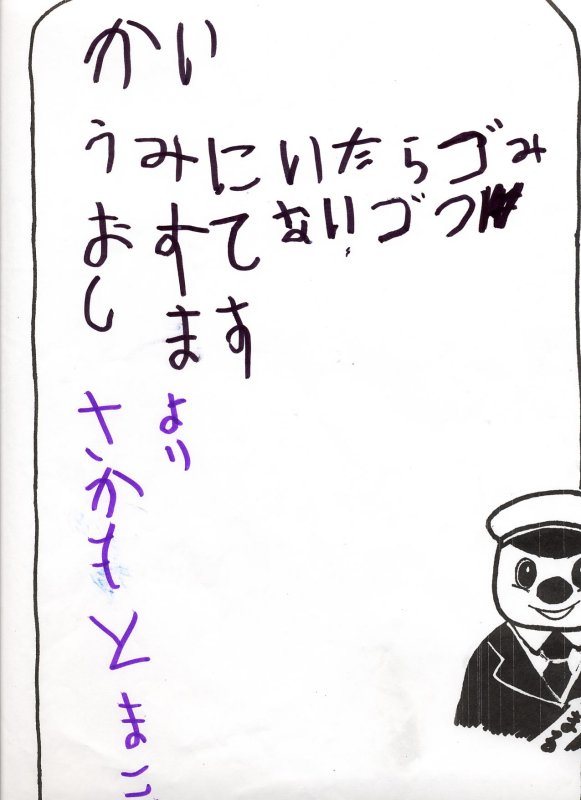 かい
うみにいたらゴみ
おすてないゴつ
します
より
さかもとまこ